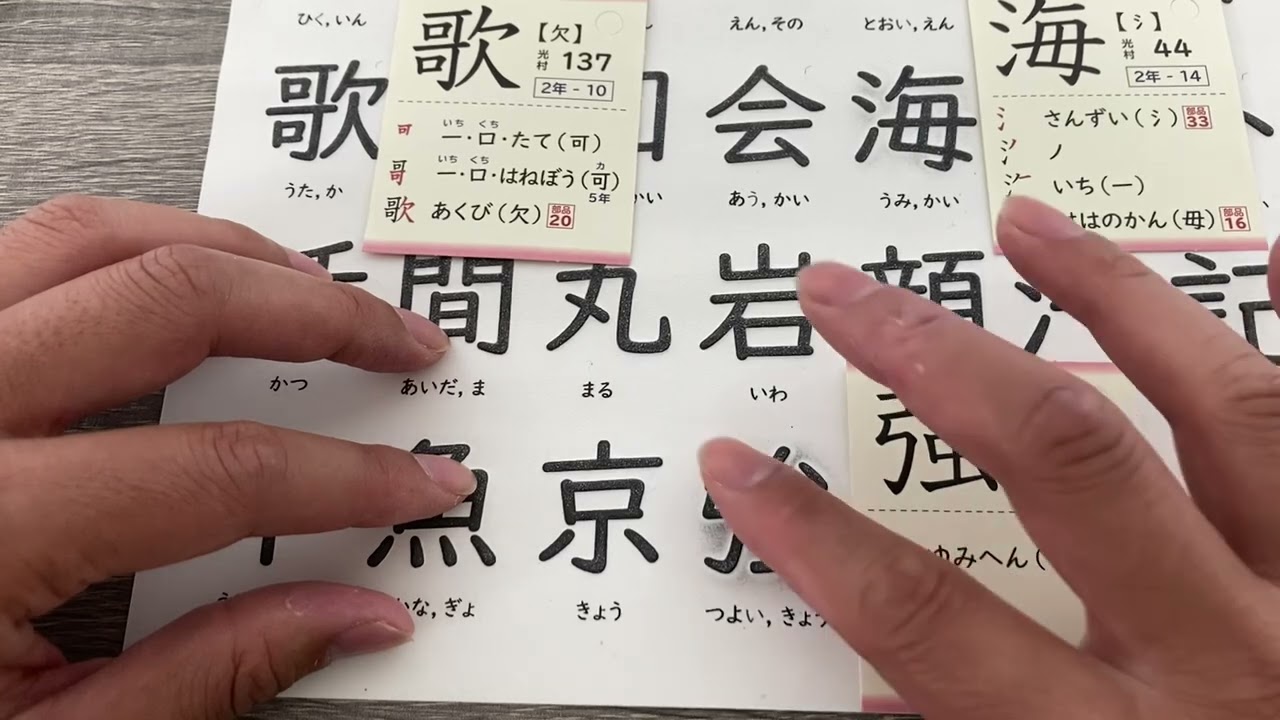 ひく, いん
えん, その
とおい, えん
歌
会
海
うた, か
かい
あう, かい
うみ, かい
歌
【欠】
光村 137
2年 - 10
可 一・口・たて(可)
いち くち
哥 一・口・はねぼう(可)
いち くち カ
5年
歌 あくび(欠) 部品 20
海
【氵】
光村 44
2年 - 14
氵 さんずい(氵) 部品 33
ノ
いち(一)
はのかん(毋) 部品 16
間 丸 岩 顔 記
かつ
あいだ, ま
まる
いわ
魚 京 強
ぎょ
きょう
つよい, きょう
強
ゆみへん(